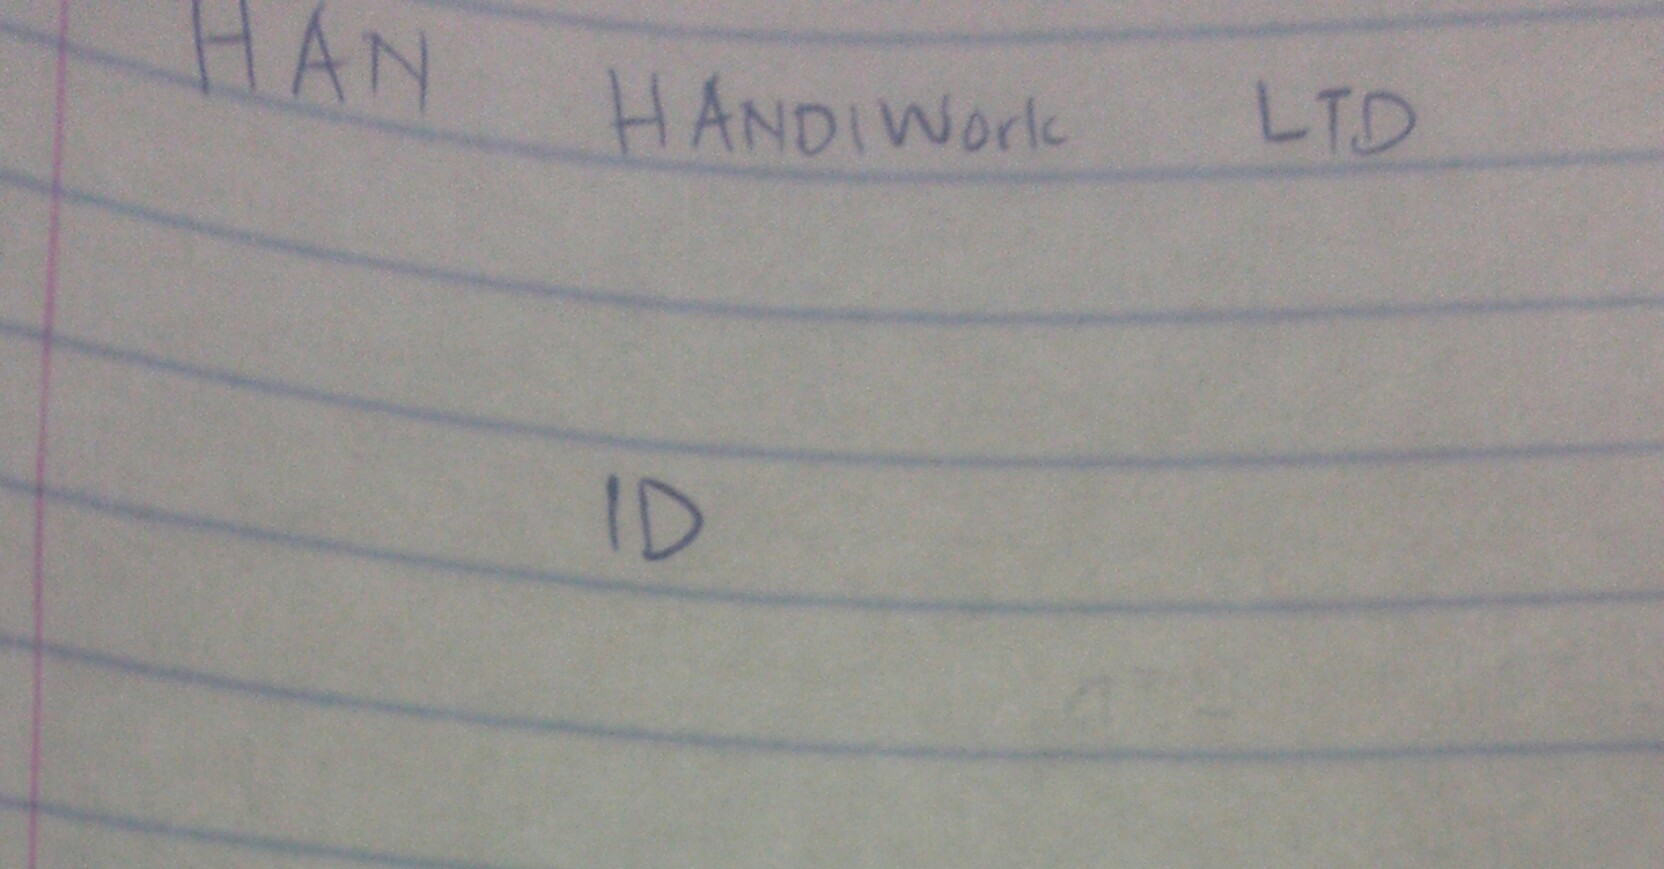 HAN HANDIWork LTD
ID